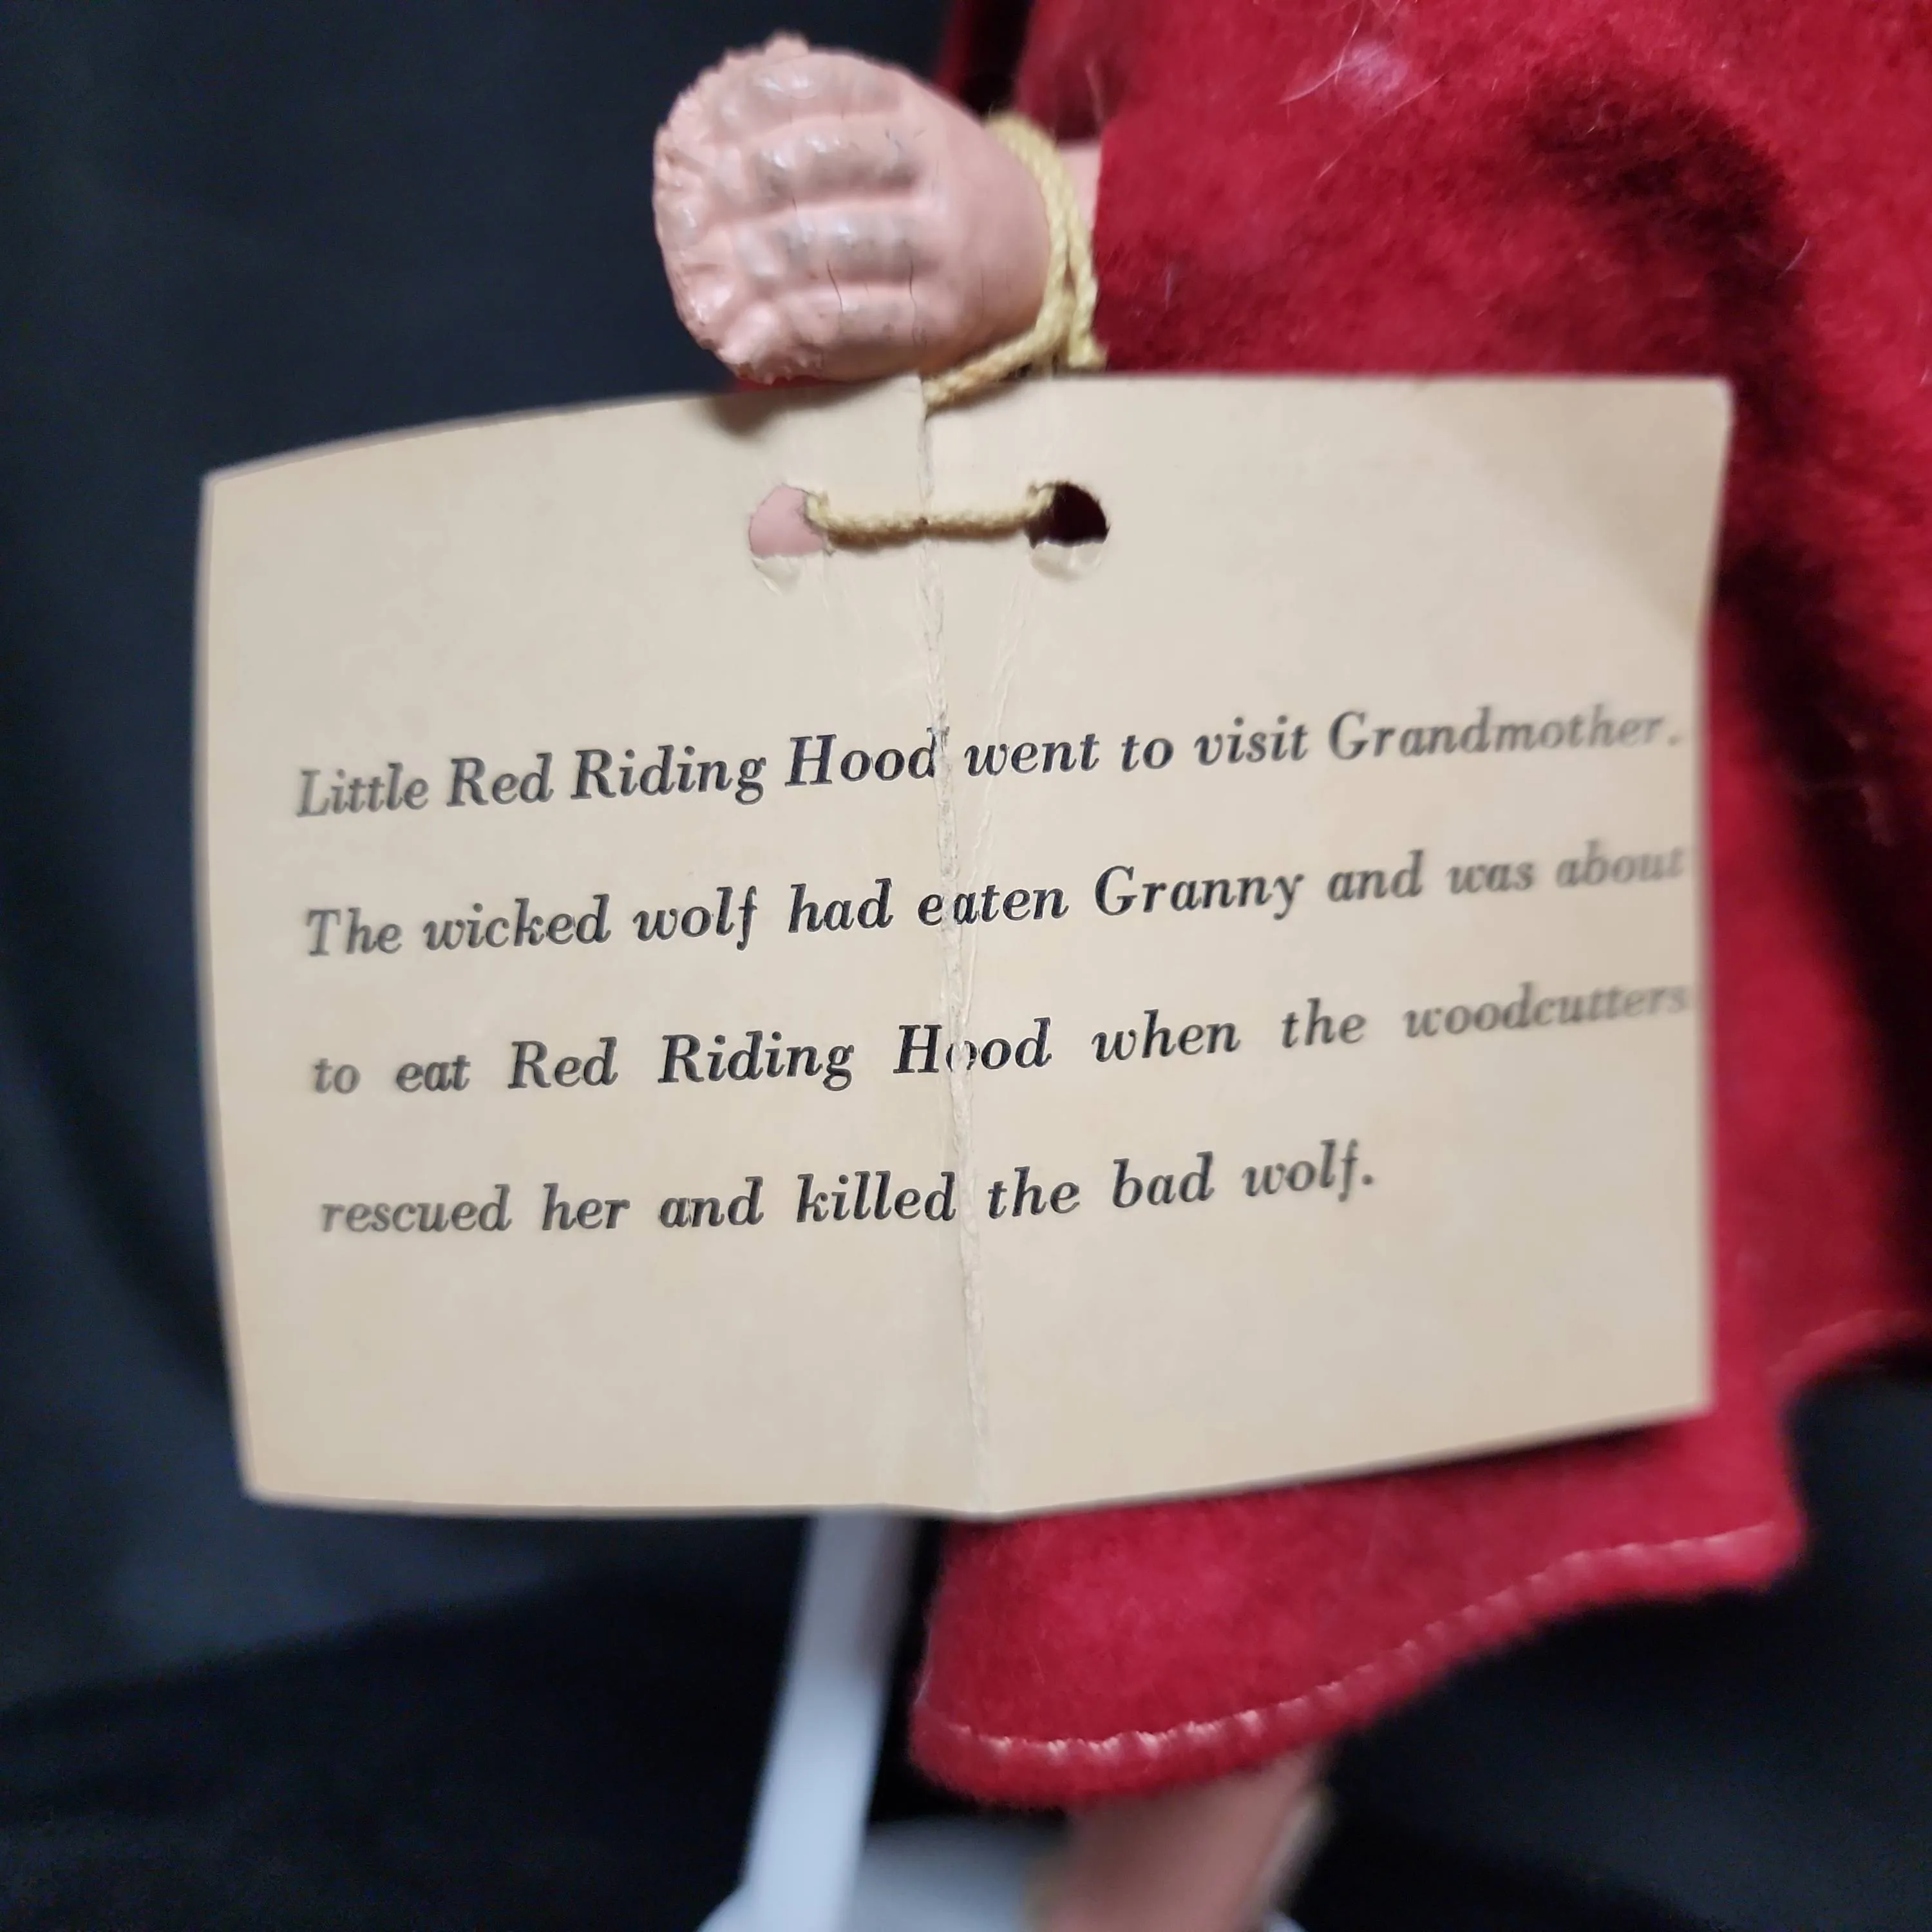 Little Red Riding Hood went to visit Grandmother.
The wicked wolf had eaten Granny and was about
to eat Red Riding Hood when the woodcutters
rescued her and killed the bad wolf.